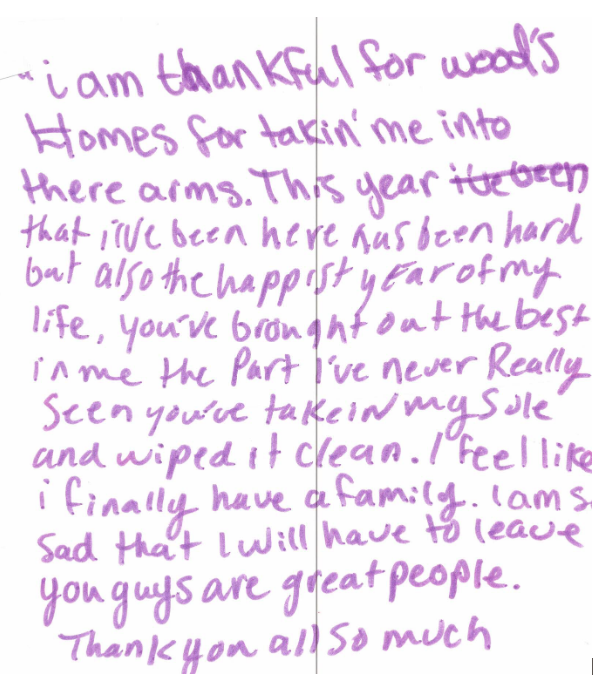 "i am thankful for wood's
Homes for takin' me into
there arms. This year ~~i've been~~
that i've been here has been hard
but also the happist year of my
life, you've brought out the best
in me the Part I've never Really
Seen you've takein my Sole
and wiped it clean. I feel like
i finally have a family. I am s
Sad that I will have to leave
you guys are great people.
Thank you all so much